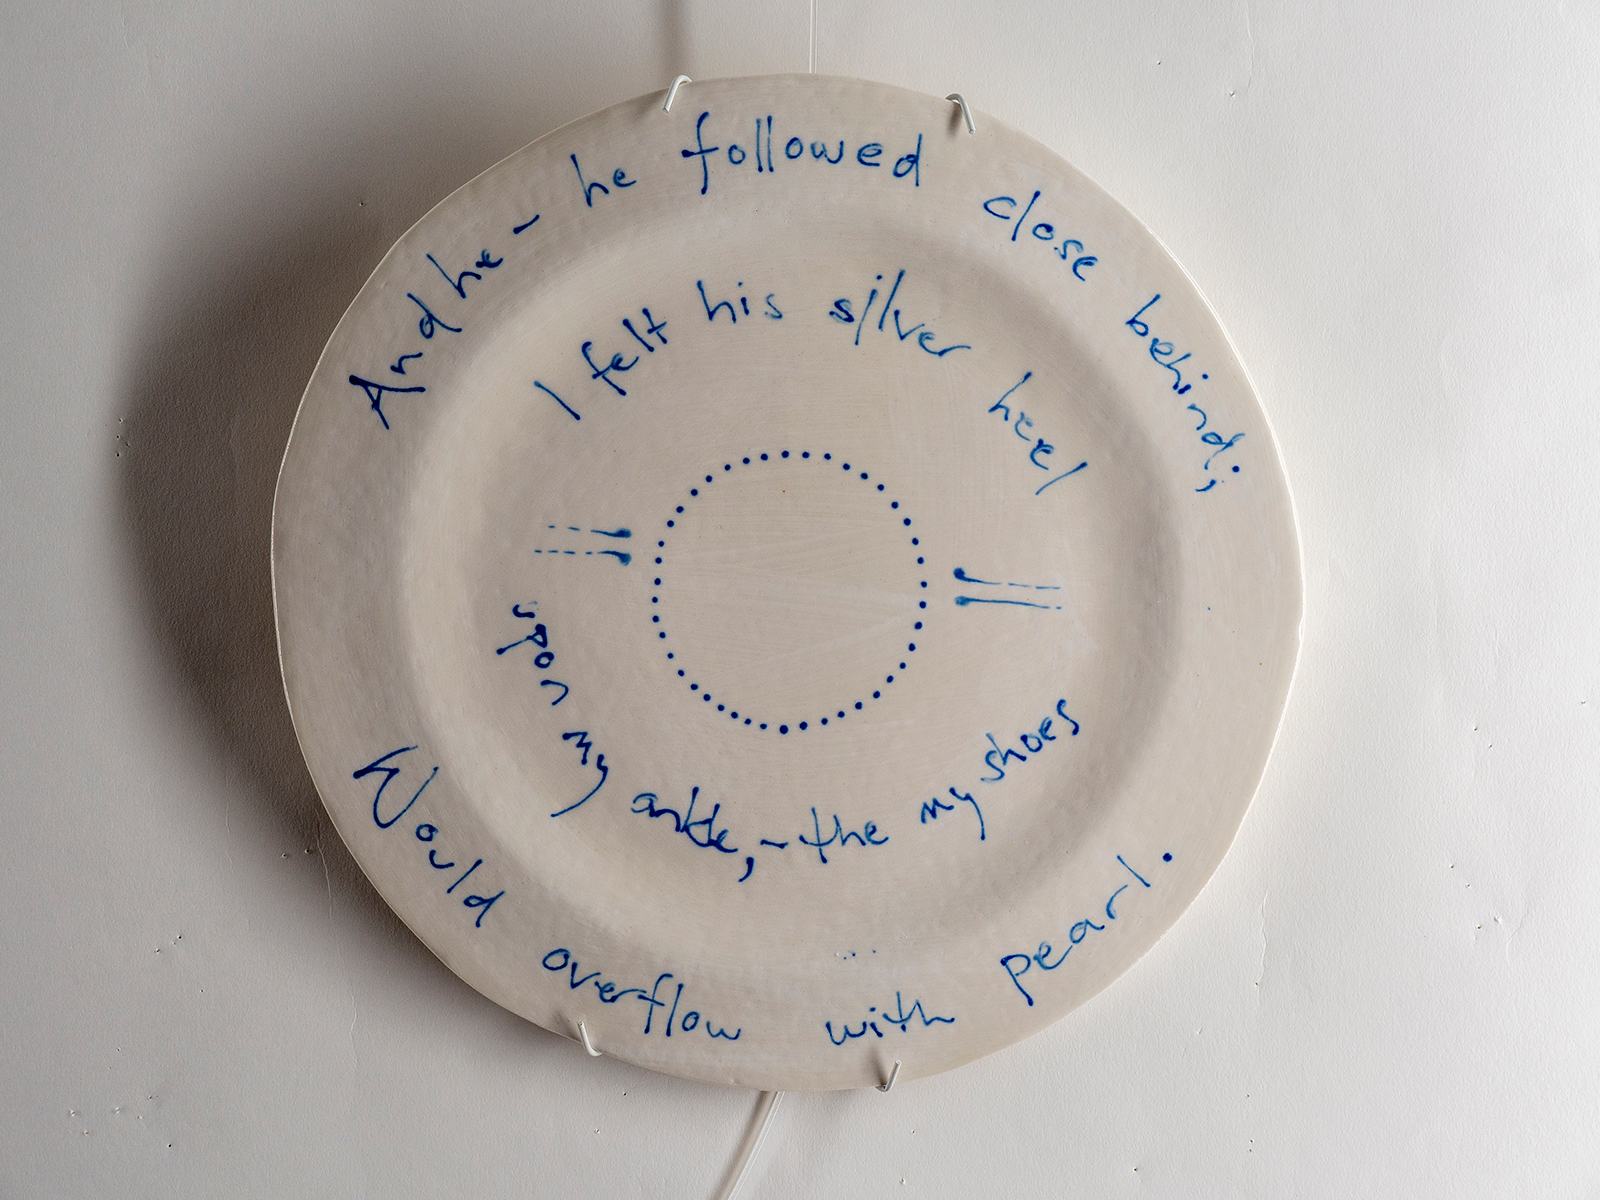 And he - he followed close behind;
I felt his silver heel
upon my ankle, - the my shoes
Would overflow with pearl.